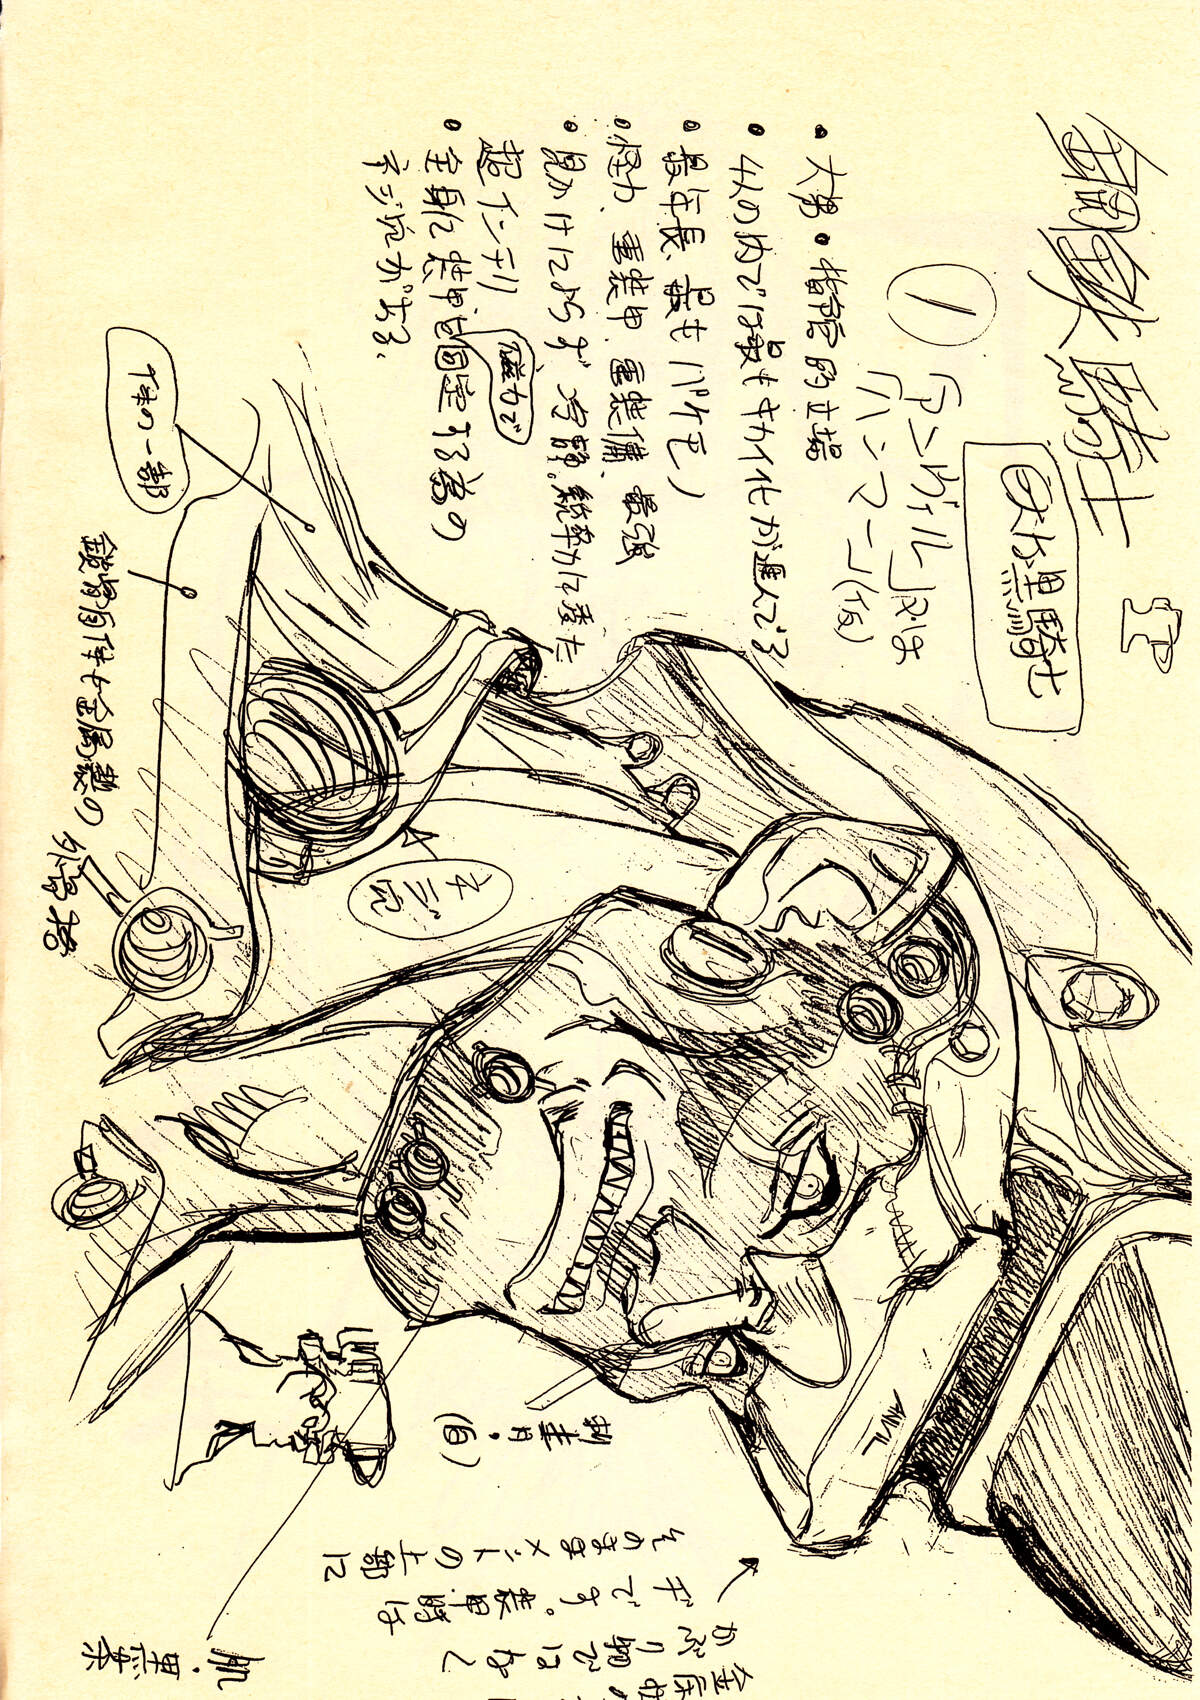 鋼鉄騎士
巨大黒騎士
①
「アンヴィル」又は
「ハンマー」(仮)
• 大男・指龍的立場
• 4人の内では最もキカイ化が進んでる
• 最年長、最もバケモノ
• 怪力、重装甲、重装備、最強
• 見かけによらず冷静。統率力に秀でた
超インテリ
• 全身に装甲を固定する為の
磁力で
ネジ穴がある、
下半の一部
鎖骨自体も金属製の
外骨格
ネジ穴
ANVIL
かぶり物ではなく
ギです。装甲時は
そのままメットの上部に
肌・黒茶